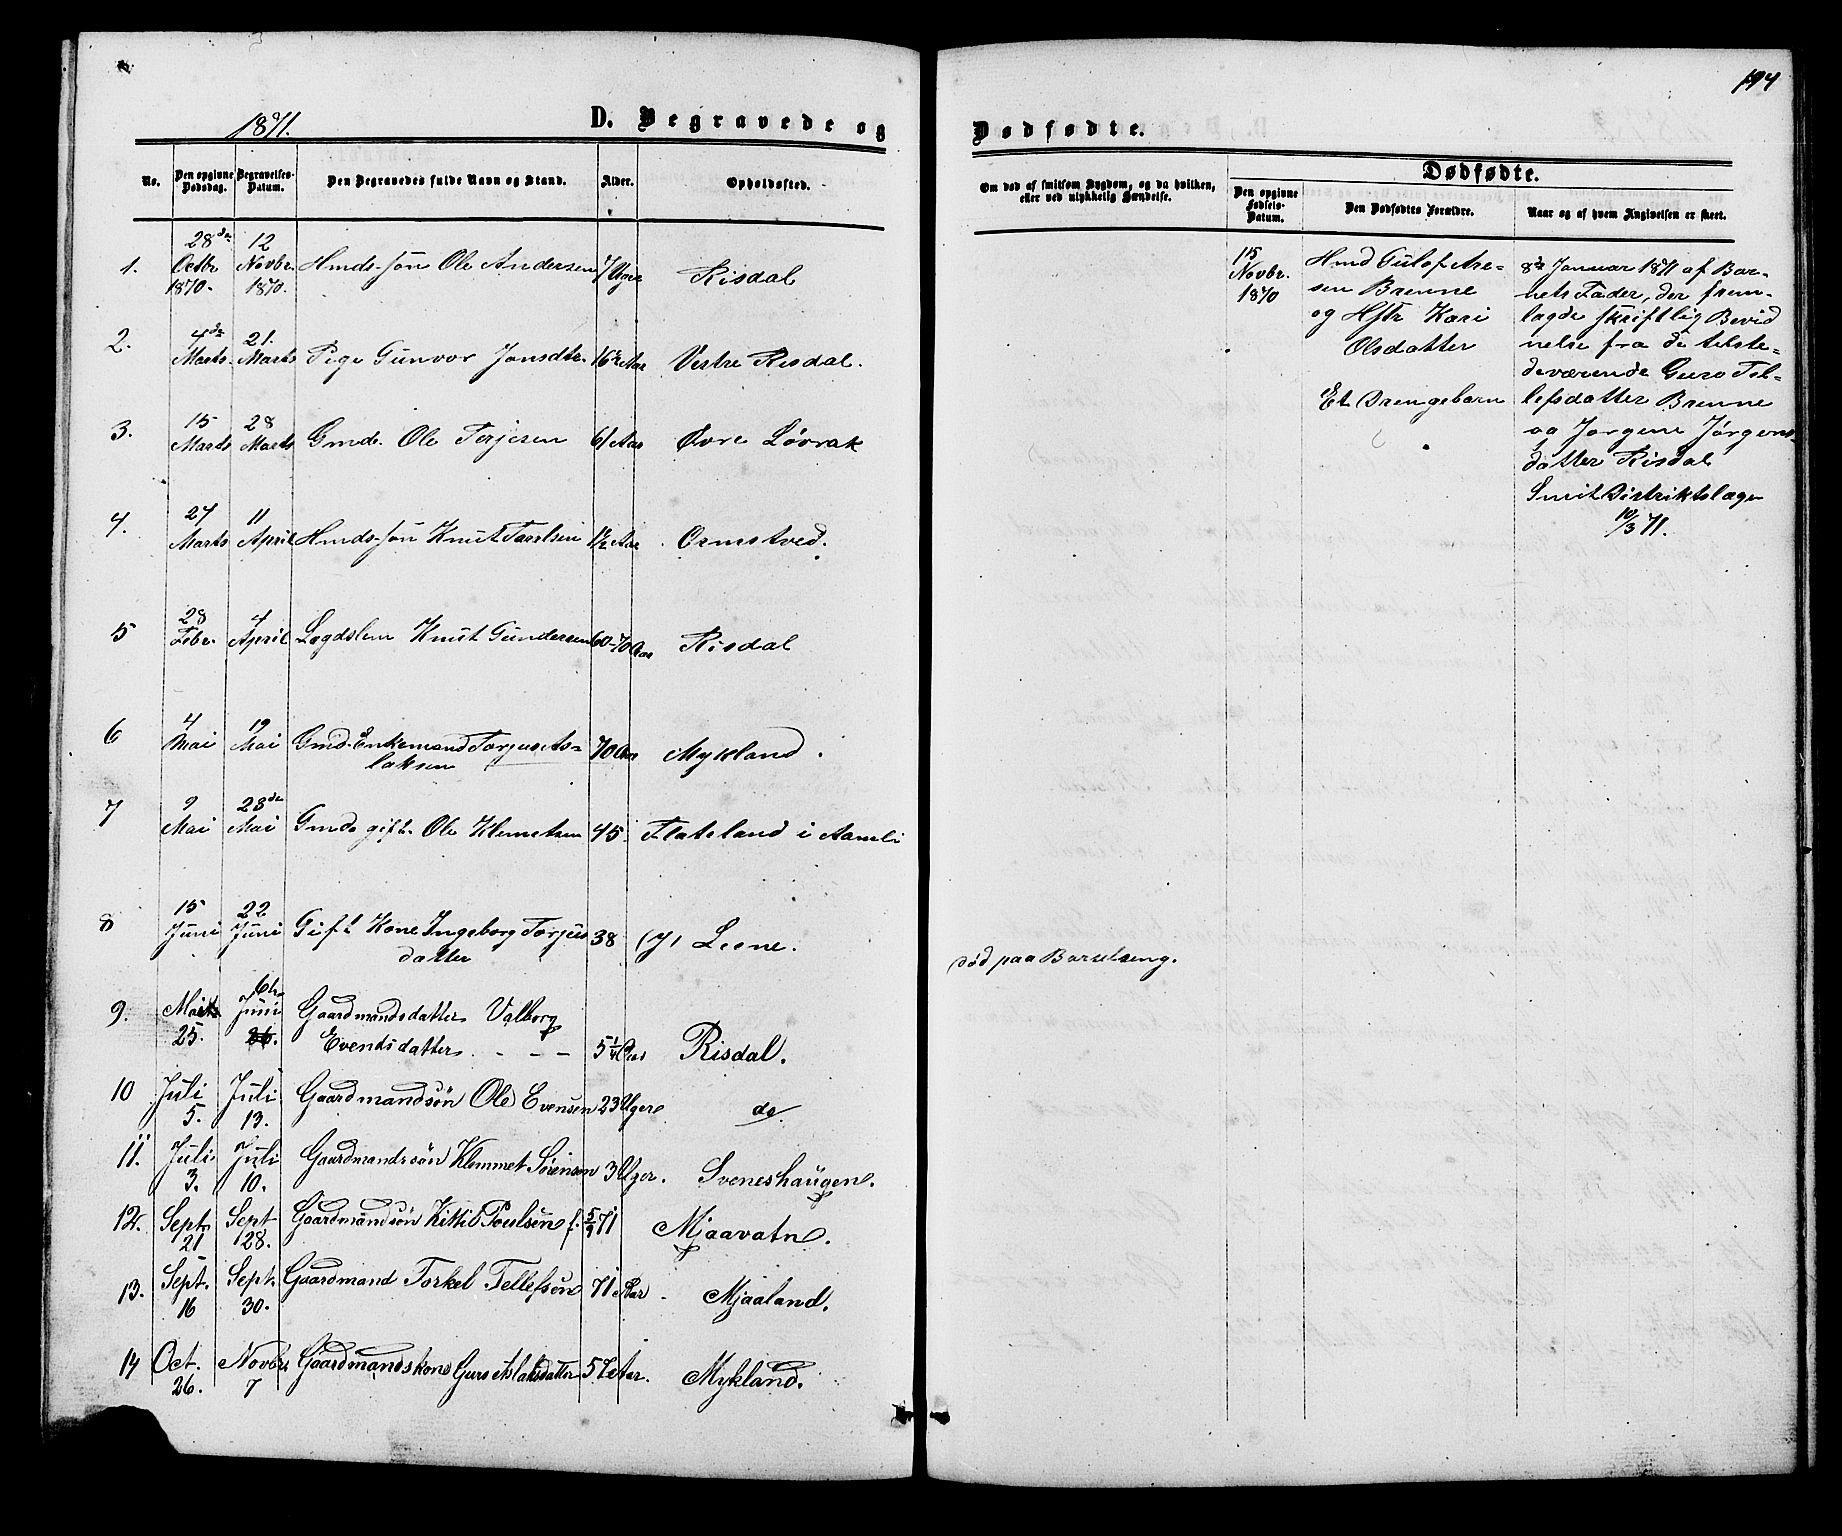 194
1871.
D. Begravede og
Dødfødte.
No.
Den opgivne Dødsdag.
Begravelses-Datum.
Den Begravedes fulde Navn og Stand.
Alder.
Opholdssted.
Om død af smitsom Sygdom, og da hvilken, eller ved ulykkelig Hændelse.
Dødfødte.
Den opgivne Fødsels-Datum.
Den Dødfødtes Forældre.
Naar og af hvem Angivelsen er skeet.
1. 28de Octbr 1870. 12 Novbr. 1870. Hmds. søn Ole Andersen 7 Uger Risdal
2. 4de Marts. 21. Marts Pige Gunvor Jonsdtr. 16½ Aar Vestre Risdal.
3. 15 Marts 28 Marts Gmd. Ole Terjesen 61 Aar Øvre Løvrak
4. 27 Marts 11 April Hmds. søn Knut Taralsen 1½ Aar Ormstved.
5 28 Febr. 4 April Lægdslem Knut Gundersen 60-70 Aar Risdal
6 4 Mai 19 Mai Gmd. Enkemand Torjus As-
laksen 70 Aar Mykland.
7 9 Mai 28de Mai Gmds gift. Ole Klemetsen 45 Flateland i Aamli
8 15 Juni 22 Juni Gift Kone Ingeborg Torjus
datter 38 (J) Leone.
død paa Barselseng.
9. 25. 6te Juni Gaardmandsdatter Valborg
Evendsdatter - - - 5¼ Aar Risdal.
10 Juli 5. Juli 13. Gaardmandsøn Ole Evensen 23 Uger do.
11. Juli 3. Juli 10. Gaardmandssøn Klemmet Sørensen 3 Uger. Sveneshaugen.
12. Sept. 21 Sept 28. Gaardmandsøn Kittil Poulsen f. 5/9 71 Mjaavatn.
13. Sept. 16 Sept. 30. Gaardmand Torkel Tellefsen 71 Aar Mjaaland.
14 Oct. 26. Novbr 7 Gaardmandskone Guro Aslaksdatter 57 Aar. Mykland.
15 Novbr. 1870
Hmd Gulof Are-
sen Brenne
og Hstr Kari
Olsdatter
Et Drengebarn
8de Januar 1871 af Bar-
nets Fader, der frem-
lagde skriftlig Bevid
nelse fra de tilste-
deværende Guro Tel-
lefsdatter Brenne
og Jørgine Jørgens-
datter Risdal
Smit Distriktslæge
10/3 71.